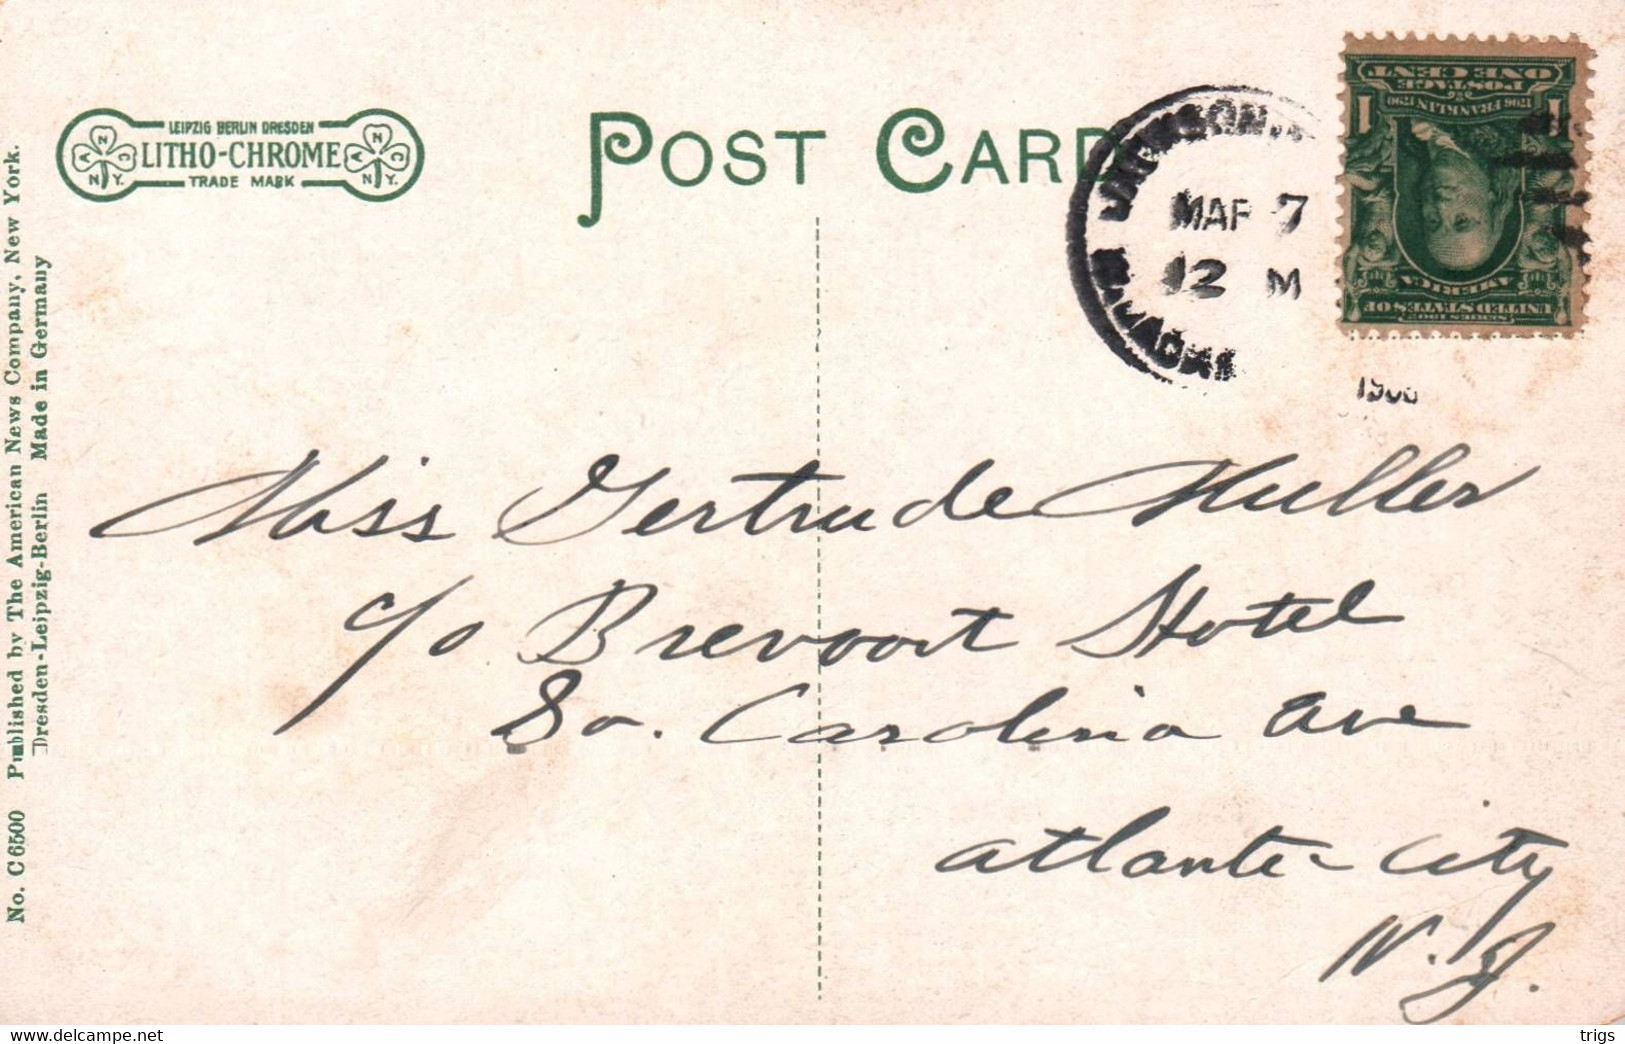 LEIPZIG BERLIN DRESDEN
LITHO-CHROME
TRADE MARK
A N C N.Y.
A N C N.Y.
POST CARD
MAR 7
12 M
1 1
ONE CENT
POSTAGE
1706 FRANKLIN 1790
AMERICA
UNITED STATES OF
SERIES 1902
Miss Gertrude Muller
c/o Brevoort Hotel
So. Carolina Ave
Atlantic City
N.J.
No. C 6500 Published by The American News Company, New York.
Dresden-Leipzig-Berlin Made in Germany
https://www.delcampe.net
trigs